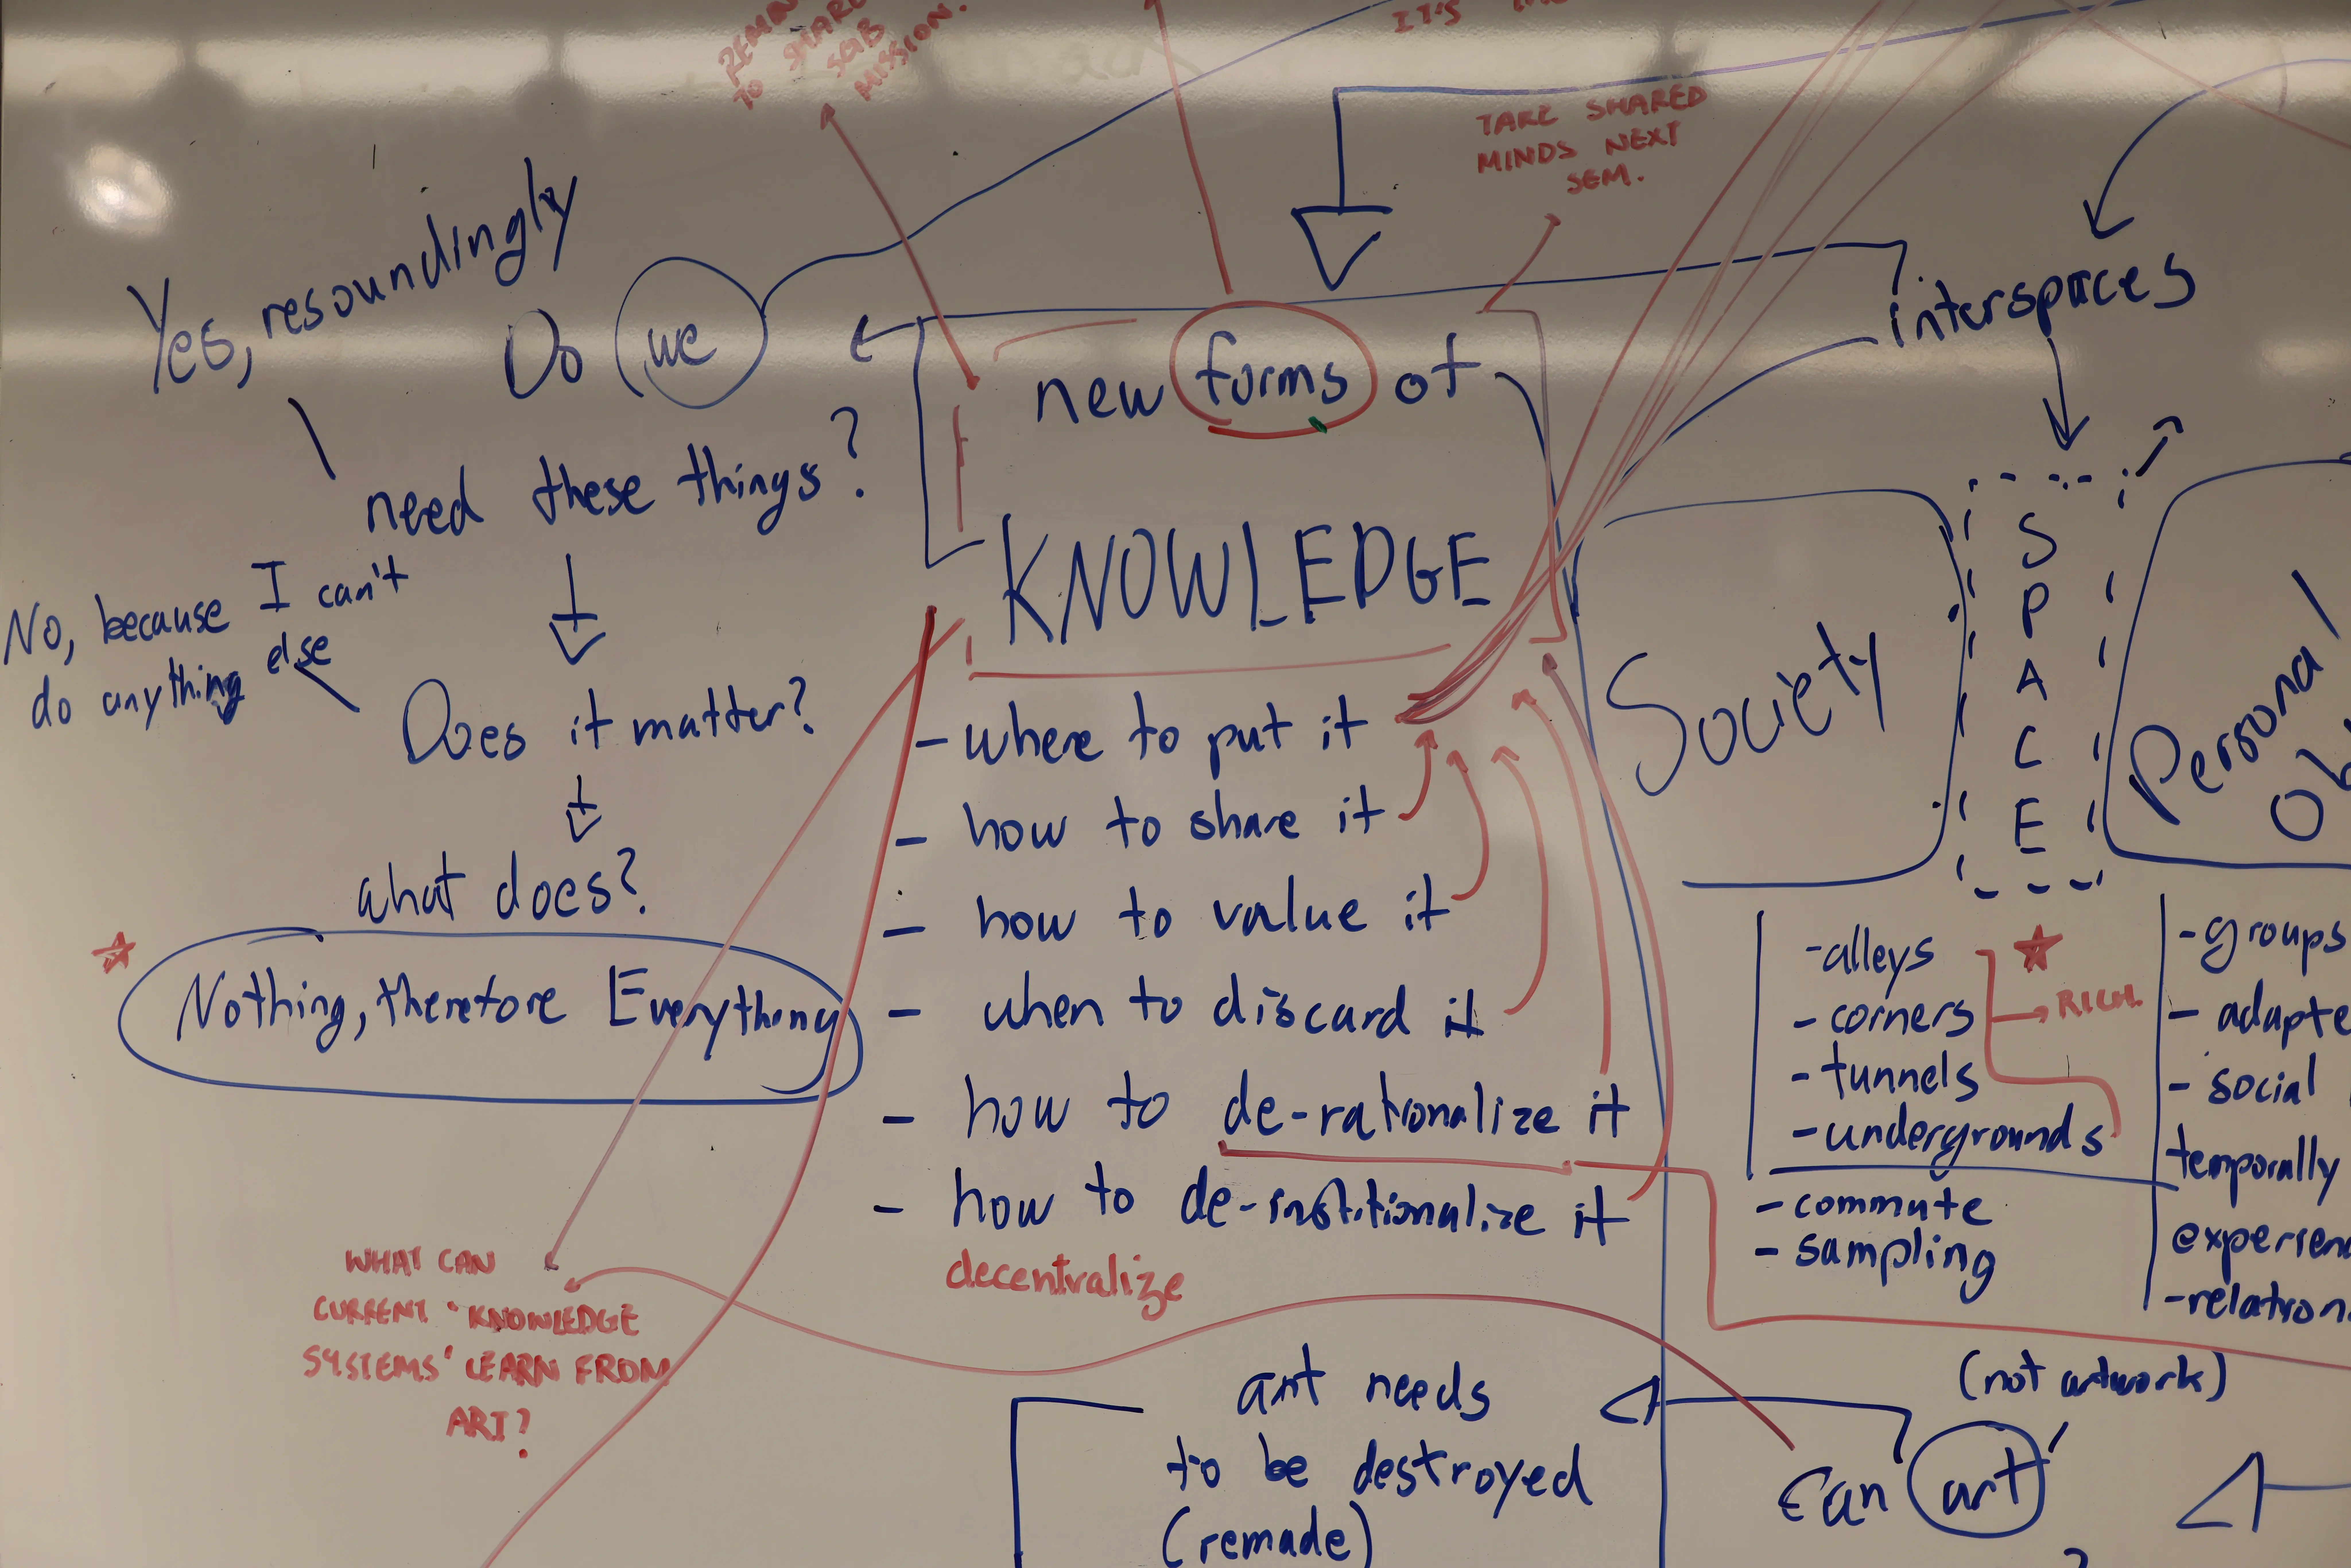 TO SHARE
MISSION.
IT'S
TAKE SHARED
MINDS NEXT
SEM.
Yes, resoundingly
Do we
need these things?
No, because I can't
do anything else
Does it matter?
what does?
Nothing, therefore Everything
new forms of
KNOWLEDGE
- where to put it
- how to share it
- how to value it
- when to discard it
- how to de-rationalize it
- how to de-institionalize it
decentralize
WHAT CAN
CURRENT "KNOWLEDGE
SYSTEMS" LEARN FROM
ART?
interspaces
Society
SPACE
Personal
- alleys
- corners
- tunnels
- undergrounds
RICH.
- commute
- sampling
- groups
- adapte
- social
temporally
experien
- relation
art needs
to be destroyed
(remade)
(not artwork)
Can art
?